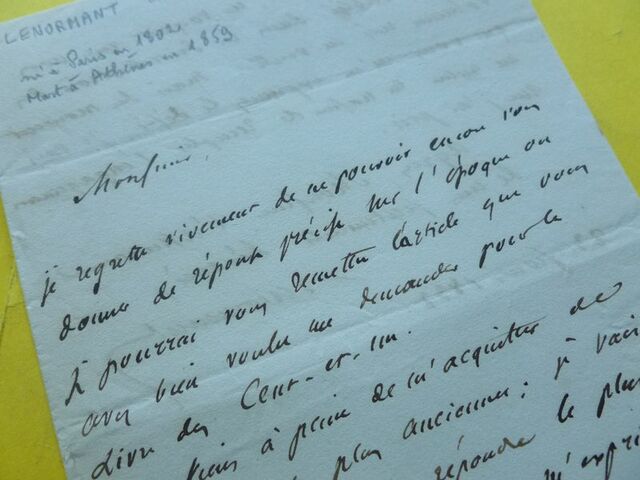 LENORMANT
né à Paris en 1802
Mort à Athènes en 1859
Monsieur,
je regrette vivement de ne pouvoir encore vous
donner de réponse précise sur l'époque où
je pourrai vous remettre l'article que vous
avez bien voulu me demander pour le
Livre des Cent-et-un.
à peine de m'acquitter de
plus ancienne; je vais
répondre le plus